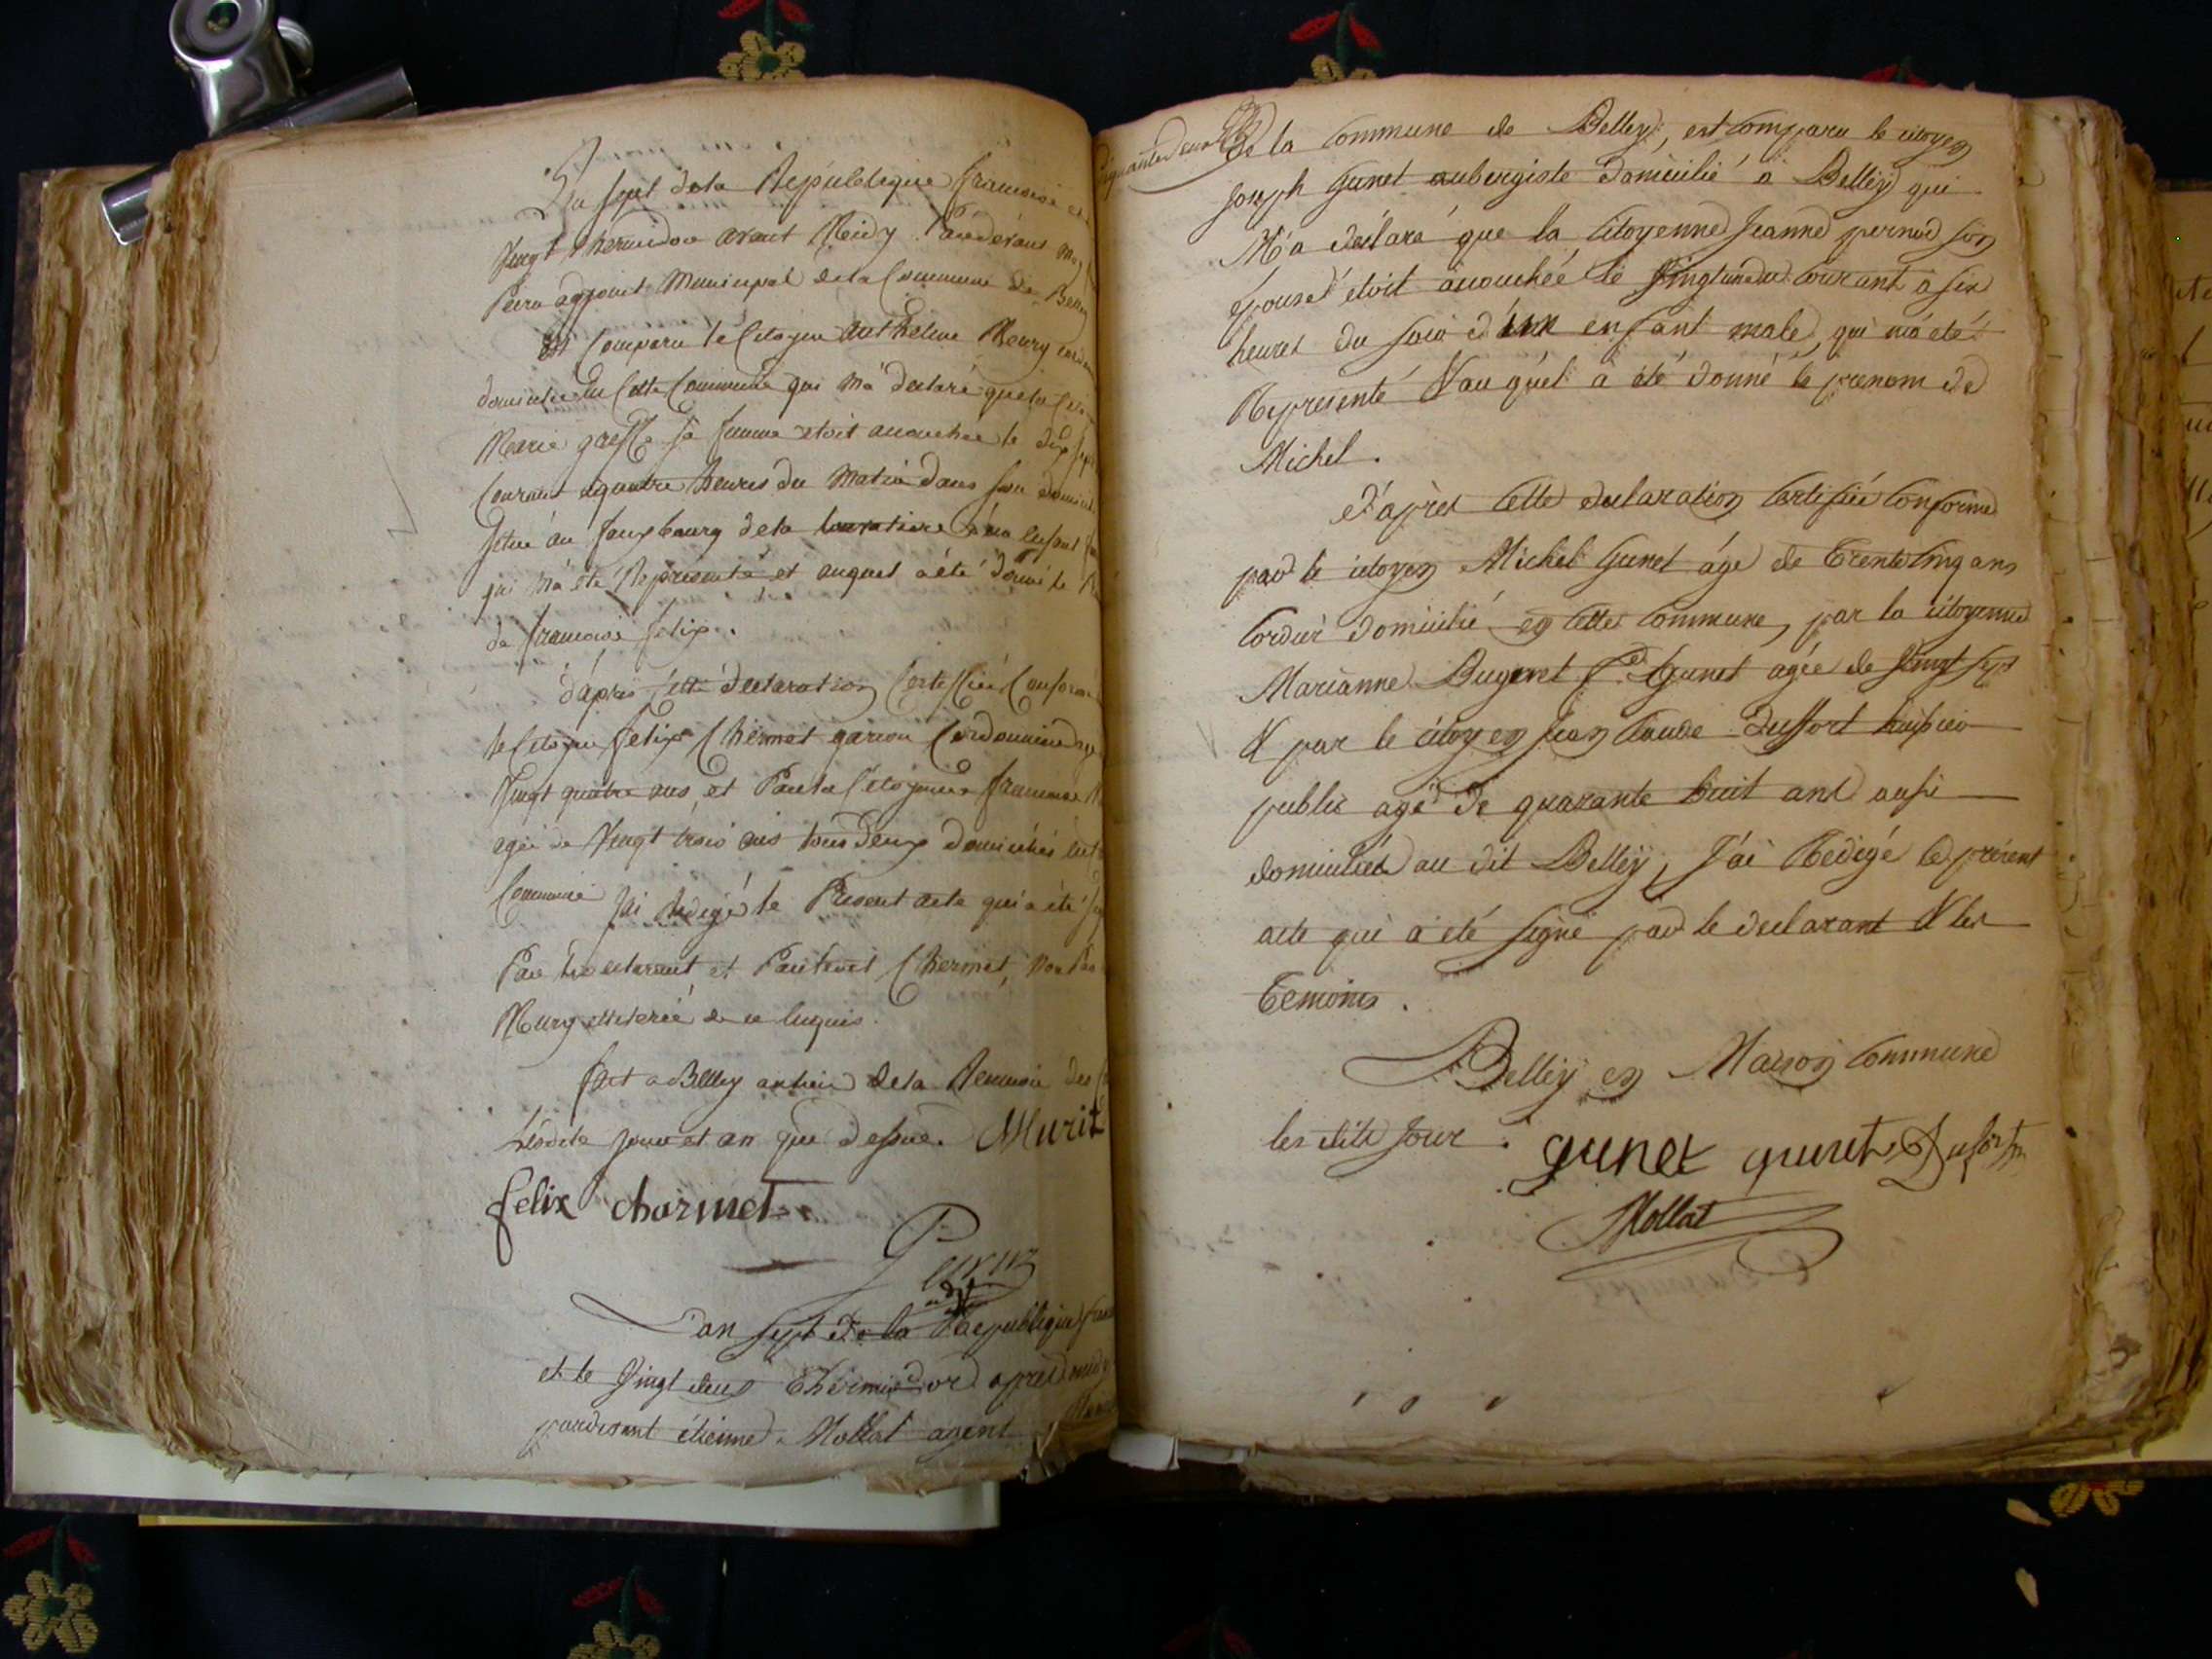 L'an sept de la République francoise et
vingt thermidor avant Midy Pardevant moy
Perin adjoint Municipal de la Commune de Belley
est Comparu le Citoyen Anthelme Meury
domicilié en Cette Commune qui m'a declaré que la Cito
Marie sa femme etoit accouchée le dix sept
Courant a quatre heures du Matin dans son domicile
Situé au fauxbourg de la d'un enfant
qui m'a été Représenté et auquel a été donné le
de francoise felix.
d'après Cette déclaration Certifiée Conforme
le Citoyen felix Chermet garçon Cordonnier agé
Vingt quatre ans, et Par la Citoyenne francoise
agée de Vingt trois ans tous deux domiciliés
Commune J'ai Redigé le Present acte qui a été
Par le declarant et Par felix Chermet, non Par
Meury illeterée de ce Enquis.
fait a Belley au lieu de la Reunion des
lesdits jour et an que dessus. Murit
felix charmet
Perin
adjt
L'an sept de la République franc
et le vingt deux thermidor après midy
pardevant étienne Mollat agent
de la Commune de Belley, est Comparu le citoyen
Joseph Gunet aubergiste domicilié à Belley qui
M'a déclaré que la Citoyenne Jeanne pernod son
épouse étoit accouchée le vingt un du courant à six
heures du soir d'un enfant male, qui m'a été
Représenté & auquel a été donné le prenom de
Michel.
d'après Cette declaration Certifiée Conforme
par le citoyen Michel Gunet agé de trente cinq ans
Cordier domicilié en cette Commune, par la citoyenne
Marianne Bugenet fe Gunet agée de vingt sept
& par le citoyen Jean Claude Duffort huissier
public agé de quarante huit ans aussi
domiciliés au dit Belley, J'ai Redigé le present
acte qui a été Signé par le declarant & les
temoins.
Belley en Maison Commune
les dits Jour. gunet gunet Dufort
Mollat